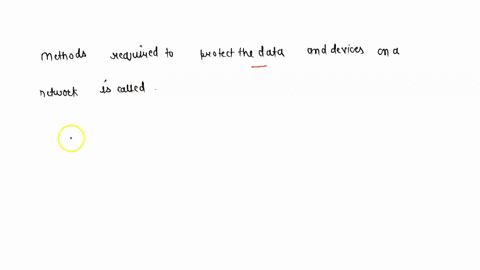 methods required to protect the data and devices on a
network is called .